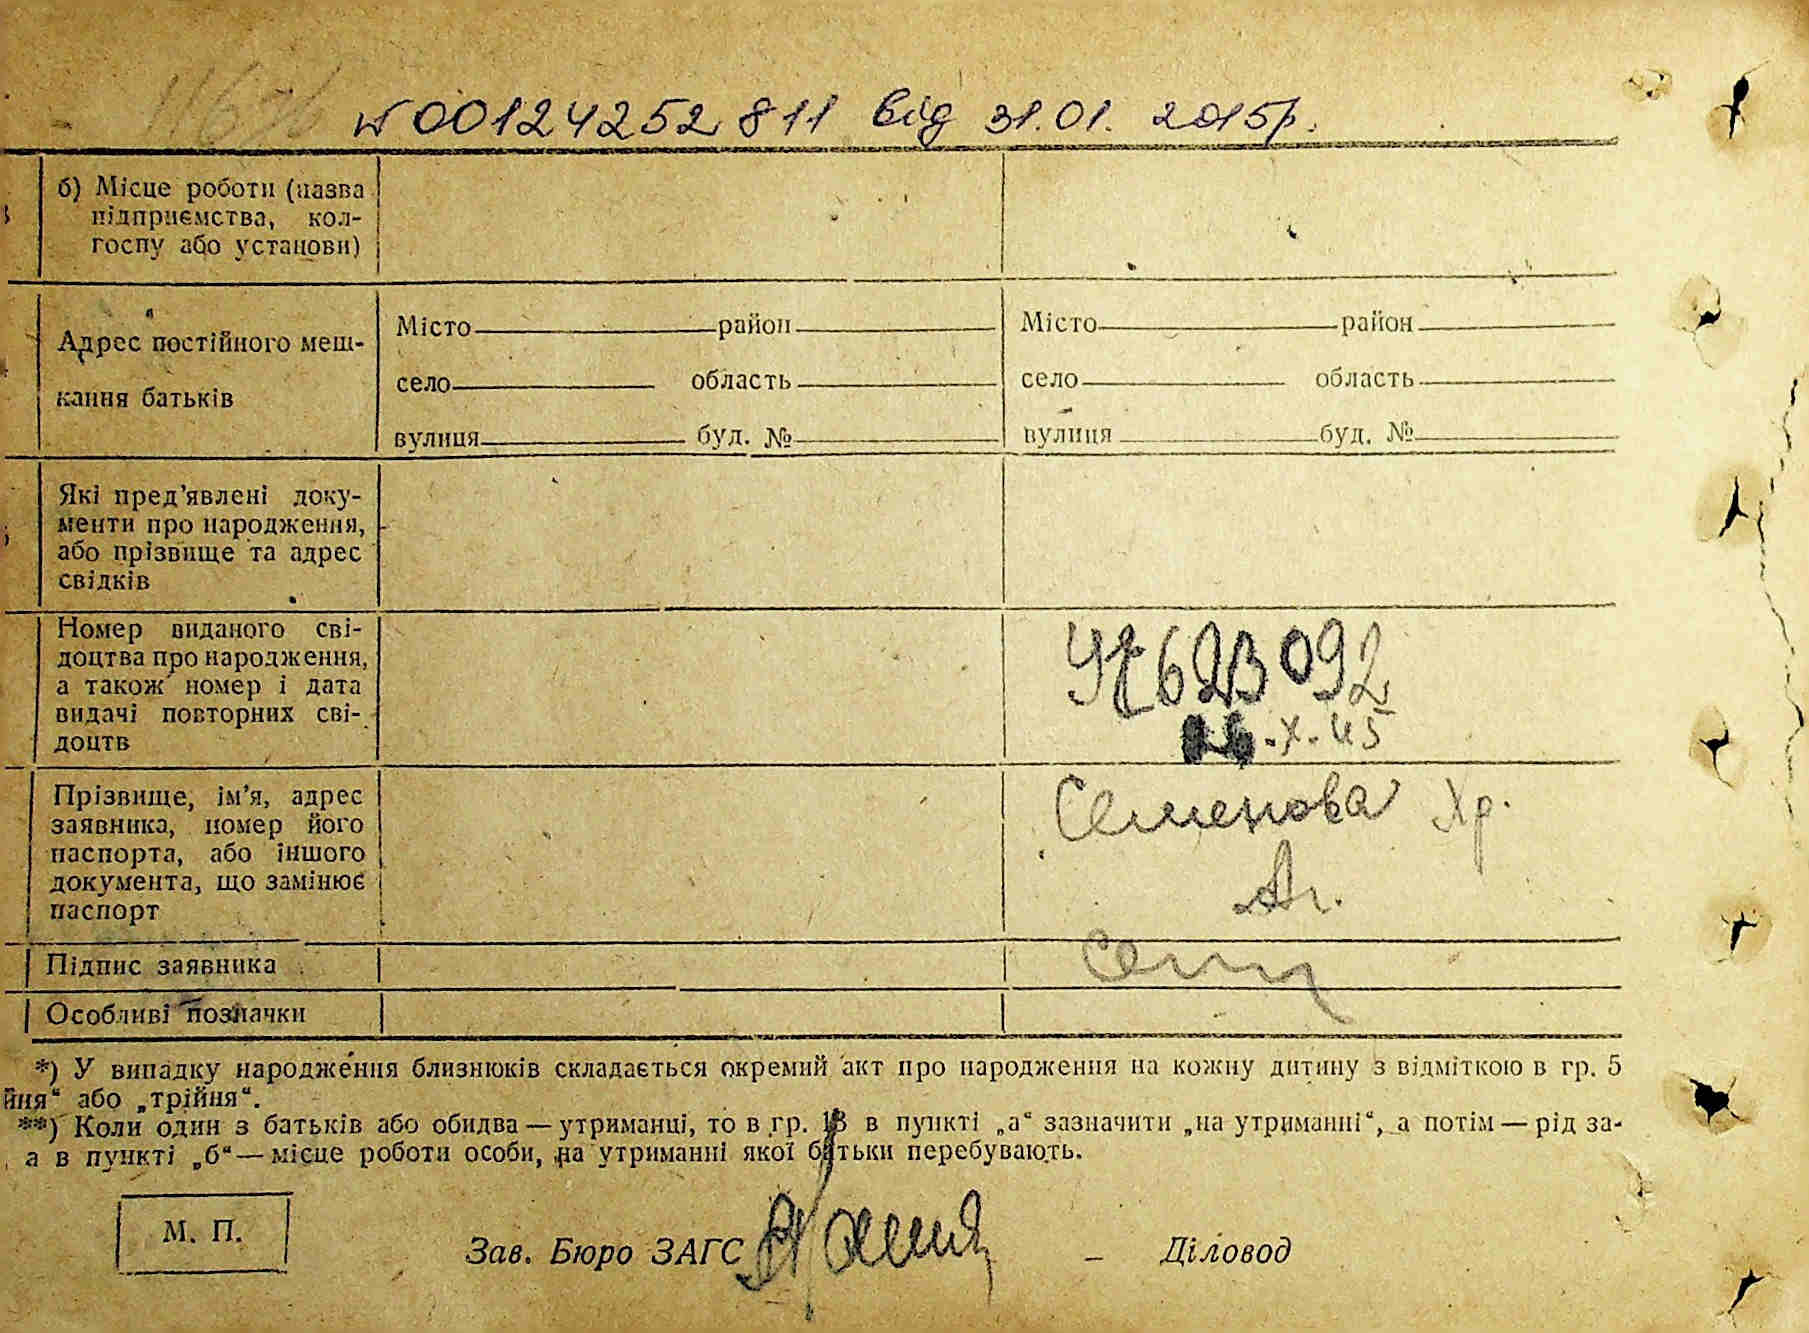 №00124252811 від 31.01.2015р.
б) Місце роботи (назва
підприємства, кол-
госпу або установи)
Адрес постійного меш-
кання батьків
Місто район
село область
вулиця буд. №
Місто район
село область
вулиця буд. №
Які пред'явлені доку-
менти про народження,
або прізвище та адрес
свідків
Номер виданого сві-
доцтва про народження,
а також номер і дата
видачі повторних сві-
доцтв
092
.X.45
Прізвище, ім'я, адрес
заявника, номер його
паспорта, або іншого
документа, що замінює
паспорт
Семенова Хр.
Підпис заявника
Особливі позначки
*) У випадку народження близнюків складається окремий акт про народження на кожну дитину з відміткою в гр. 5
йня“ або „трійня“.
**) Коли один з батьків або обидва — утриманці, то в гр. 13 в пункті „а“ зазначити „на утриманні“, а потім — рід за-
а в пункті „б“ — місце роботи особи, на утриманні якої батьки перебувають.
М. П.
Зав. Бюро ЗАГС
Діловод